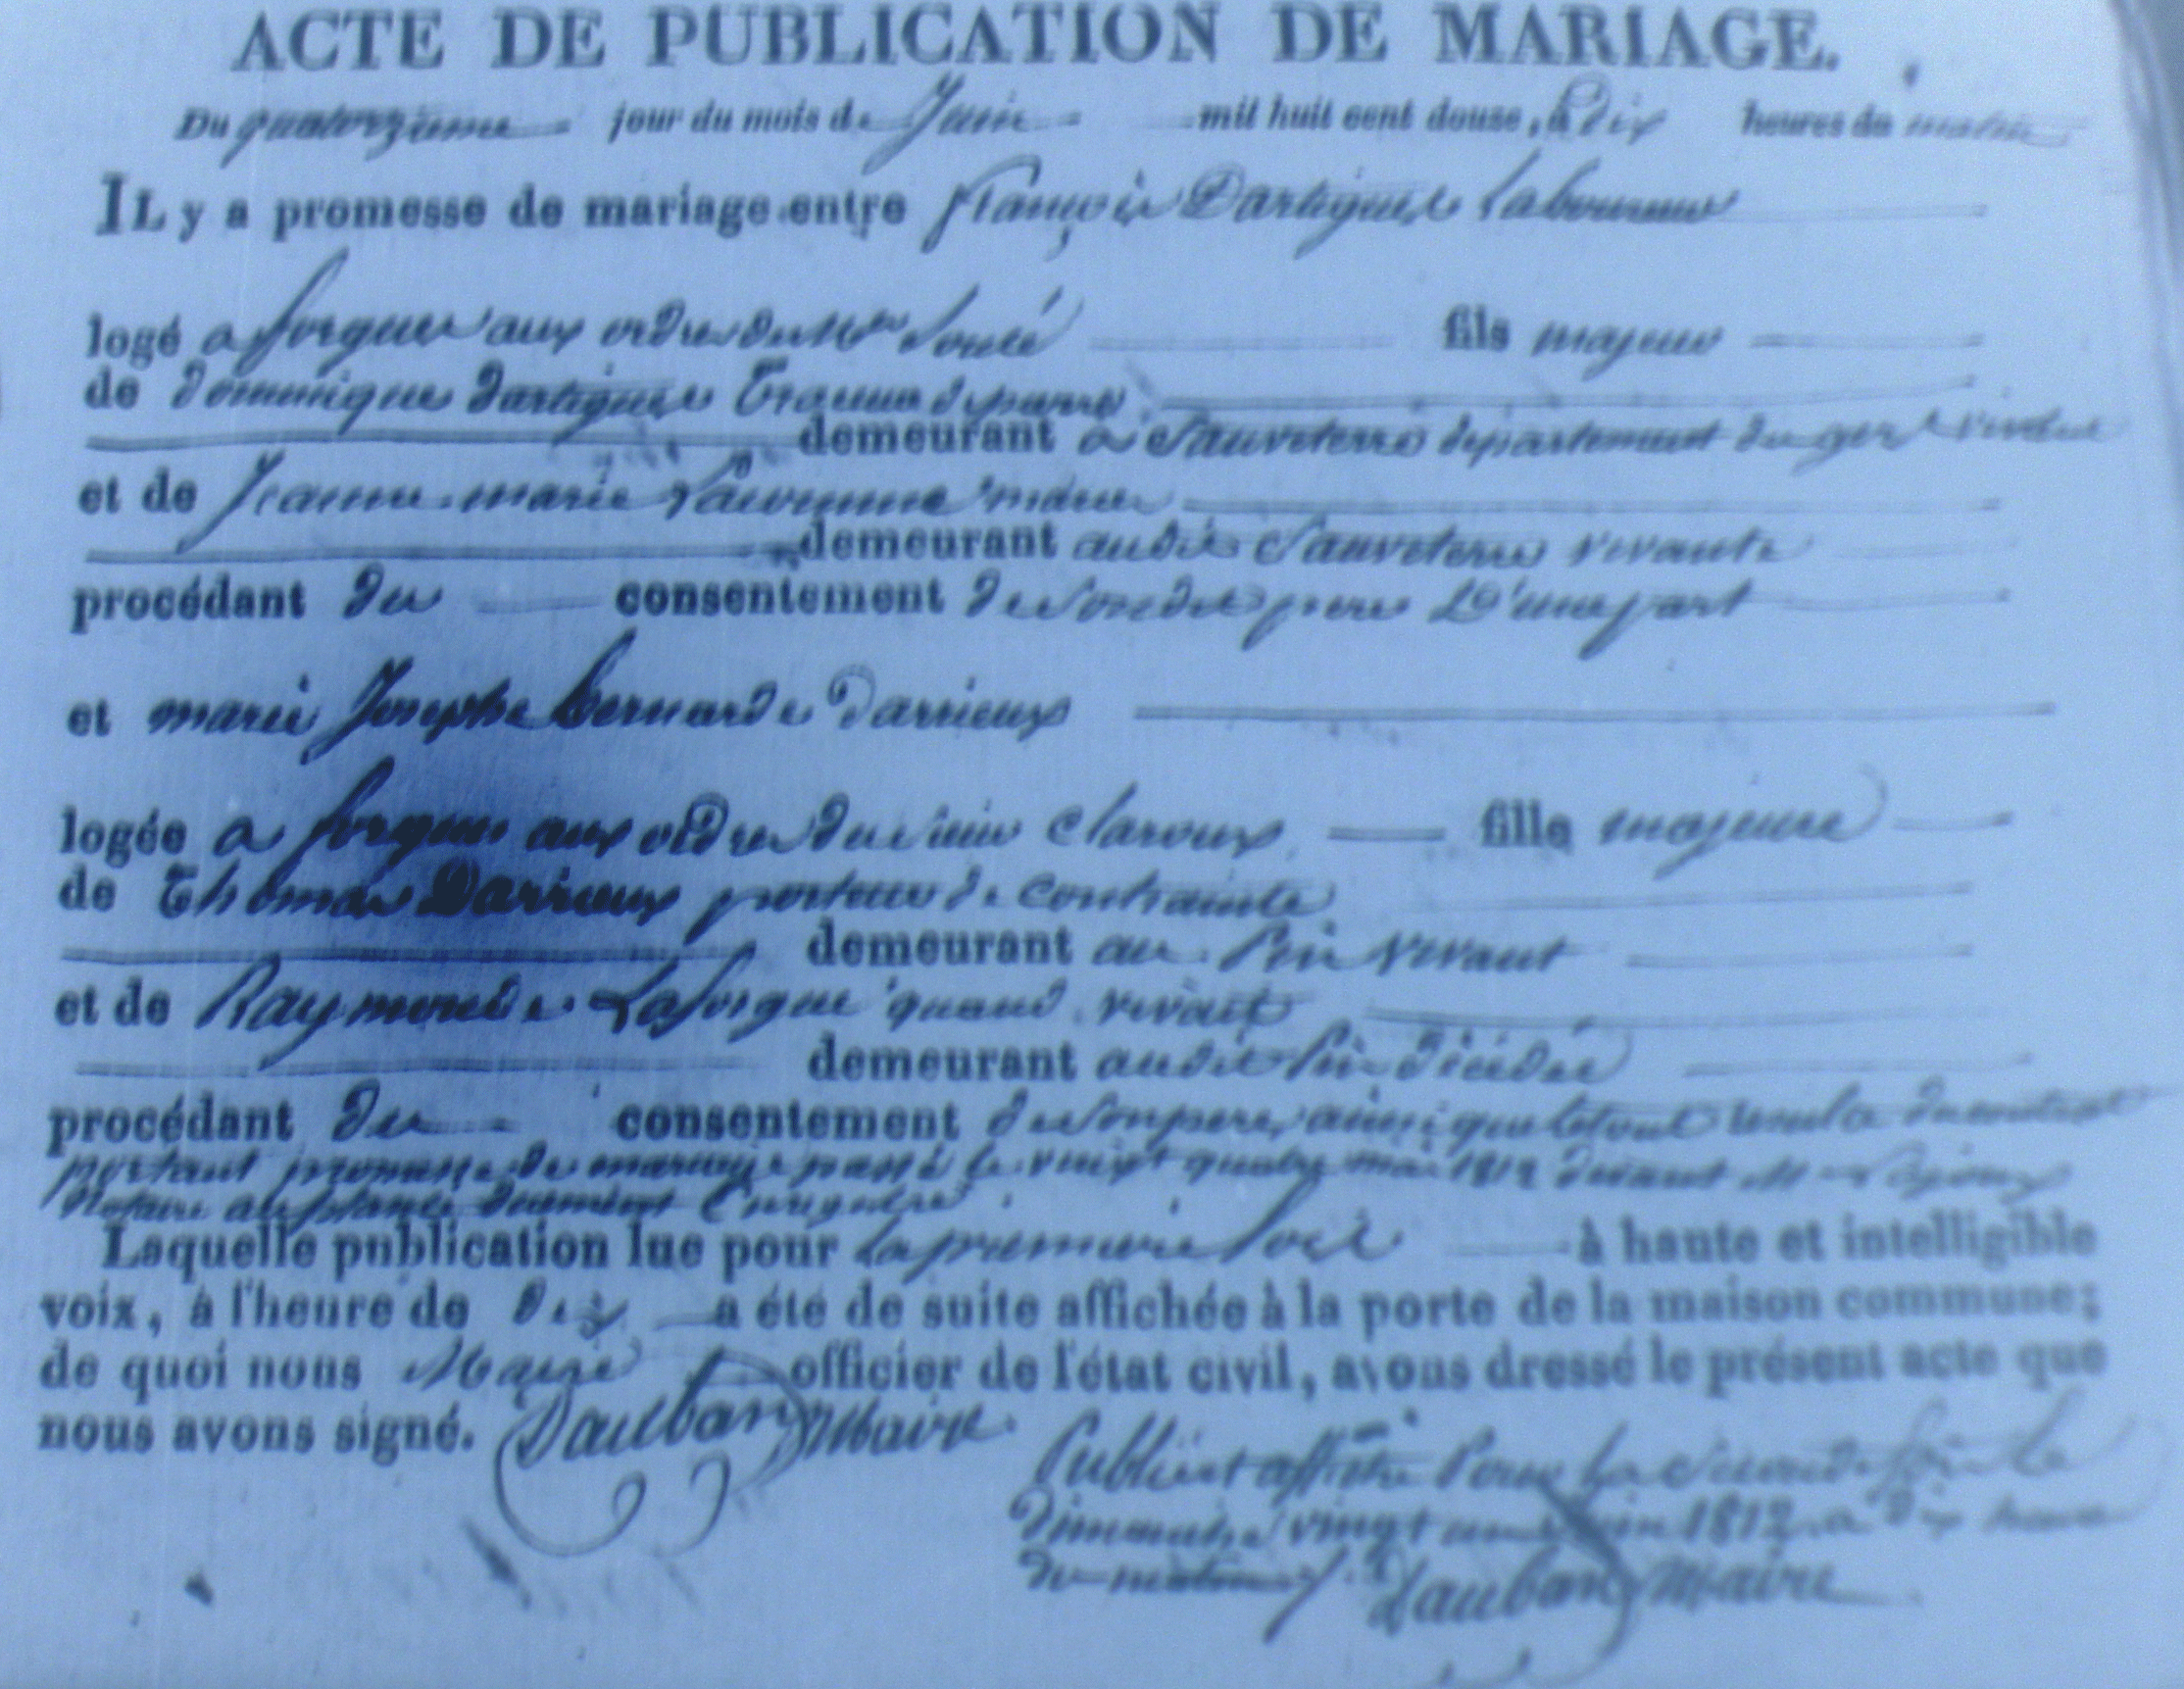 ACTE DE PUBLICATION DE MARIAGE.
Du quatorzieme jour du mois de Juin mil huit cent douze, à dix heures du matin
IL y a promesse de mariage entre françois Dartigues Laboureur
logé a forgues aux ordres du Mr Soulé fils majeur
de dominique dartigues de pierre
demeurant a Sauveterre département du gers vivant
et de Jeanne marie mariés
demeurant audit Sauveterre vivante
procédant du consentement de Sondit pere D'une part
et marie Josephe bernarde Darrieux
logée a forgues aux ordres du Sieur claroux fille majeure
de Thomas Darrieux porteur de contrainte
demeurant au Pin vivant
et de Raymonde Laforgue quand vivait
demeurant audit Pin décédée
procédant du consentement de Son pere, ainsi que le tout resulte du contrat
portant promesse de mariage passé le vingt quatre mai 1812 devant M Lajoux
Notaire duement Enregistré
Laquelle publication lue pour la premiere fois à haute et intelligible
voix, à l'heure de dix a été de suite affichée à la porte de la maison commune;
de quoi nous Maire officier de l'état civil, avons dressé le présent acte que
nous avons signé. Dauban Maire
Publié et affiché Pour La Seconde fois Le
dimanche vingt un Juin 1812 a dix heures
du matin Dauban Maire